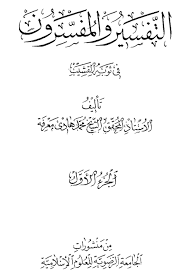 التفسير والمفسرون
في ثوبه القشيب
تأليف
الأستاذ المحقق الشيخ محمد هادي معرفة
الجزء الأول
من منشورات
الجامعة الرضوية للعلوم الإسلامية